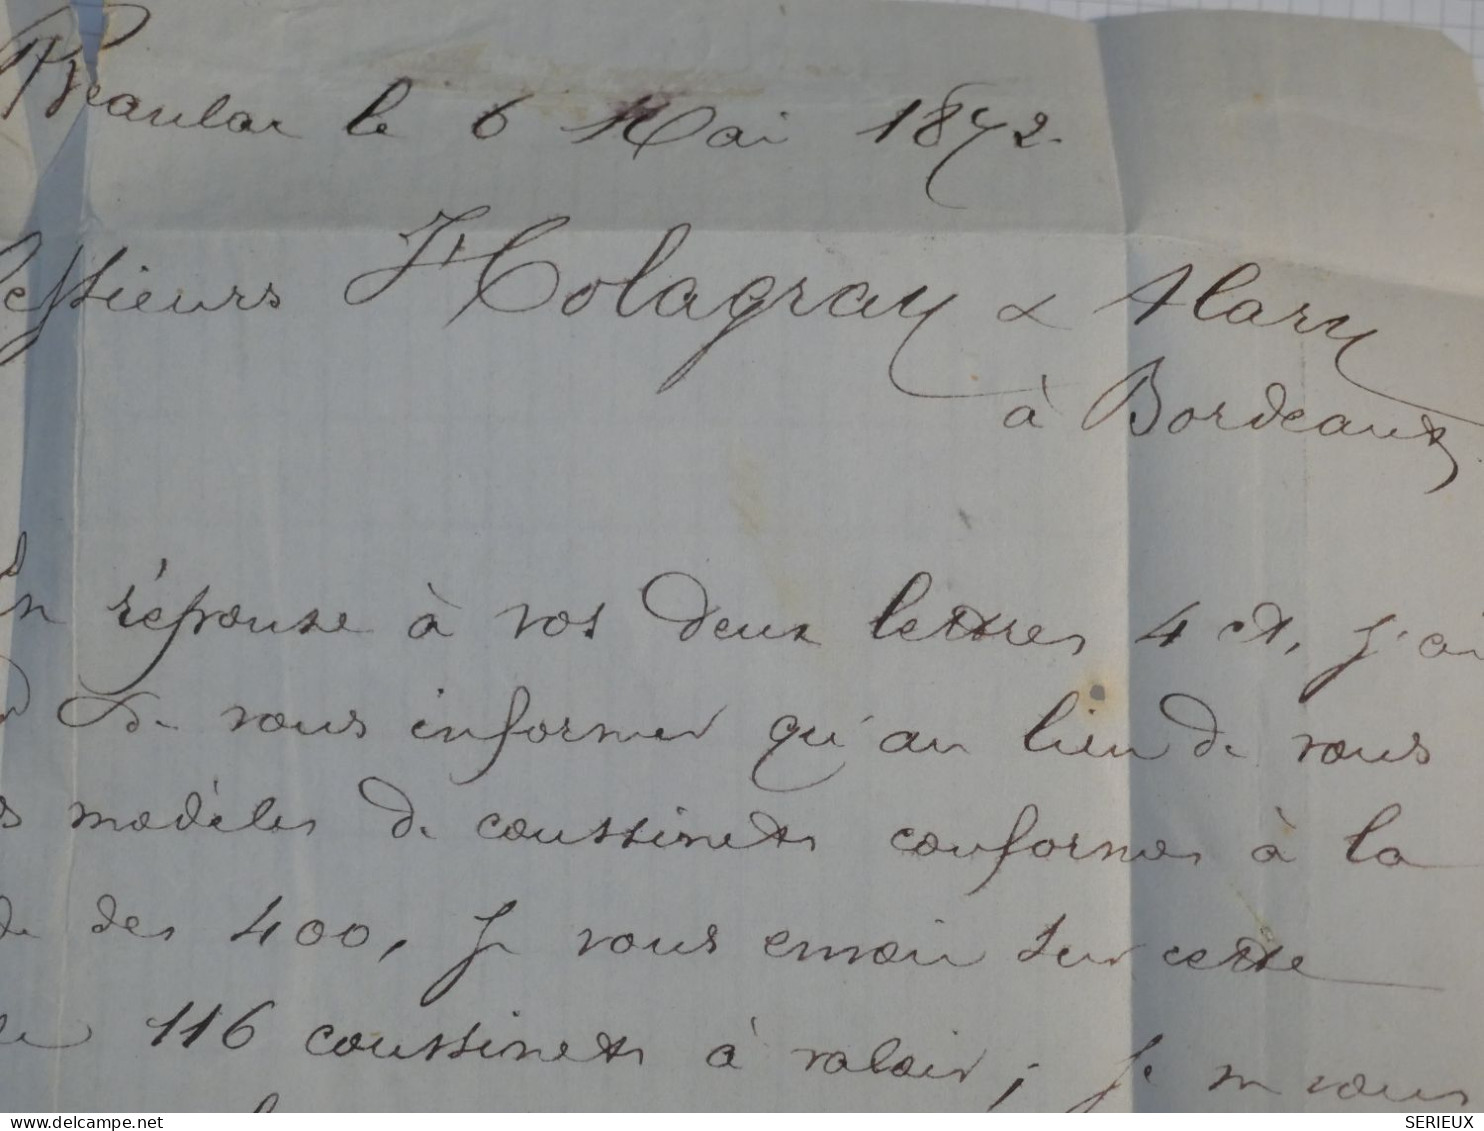 Beaulac le 6 Mai 1872.
Messieurs Holagray & Alary
à Bordeaux
En réponse à vos deux lettres 4 ct, j'ai
de vous informer qu'au lieu de vous
modèles de coussinets conformes à la
de des 400, je vous envoie sur cette
116 coussinets à valoir ; je ne vous
SERIEUX